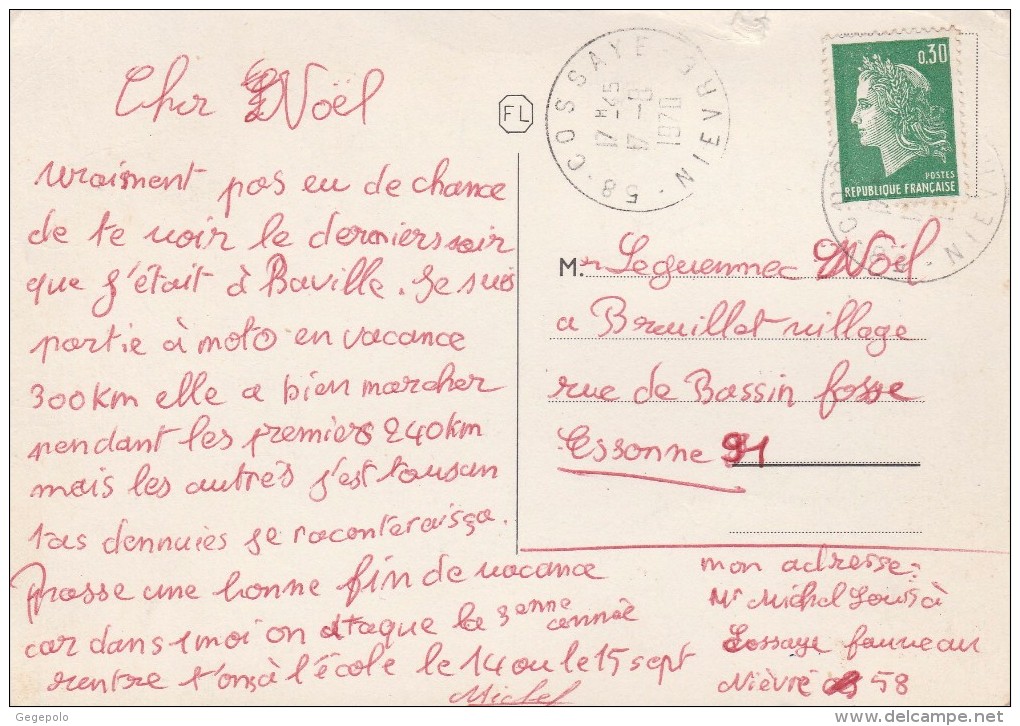 Cher Noël
vraiment pas eu de chance
de te voir le dernier soir
que j'était à Baville. Je suis
partie à moto en vacance
300km elle a bien marcher
pendant les premiers 240km
mais les autres j'est tousan
tas dennuies je raconteraisça.
Passe une bonne fin de vacance
car dans 1 moi on ataque la 3enne année
rentre t'onsà l'école le 14 ou le 15 sept
Michel
FL
58-COSSAYE NIEVRE
17H45
8-4
1970
0,30
POSTES
REPUBLIQUE FRANÇAISE
NIEV
M. r Leguennec Noël
a Breuillet village
rue de Bassin fosse
Essonne 91
mon adresse:
Mr Michel Louis à
Cossaye fauneau
Nièvre 58
Gegepolo
www.delcampe.net